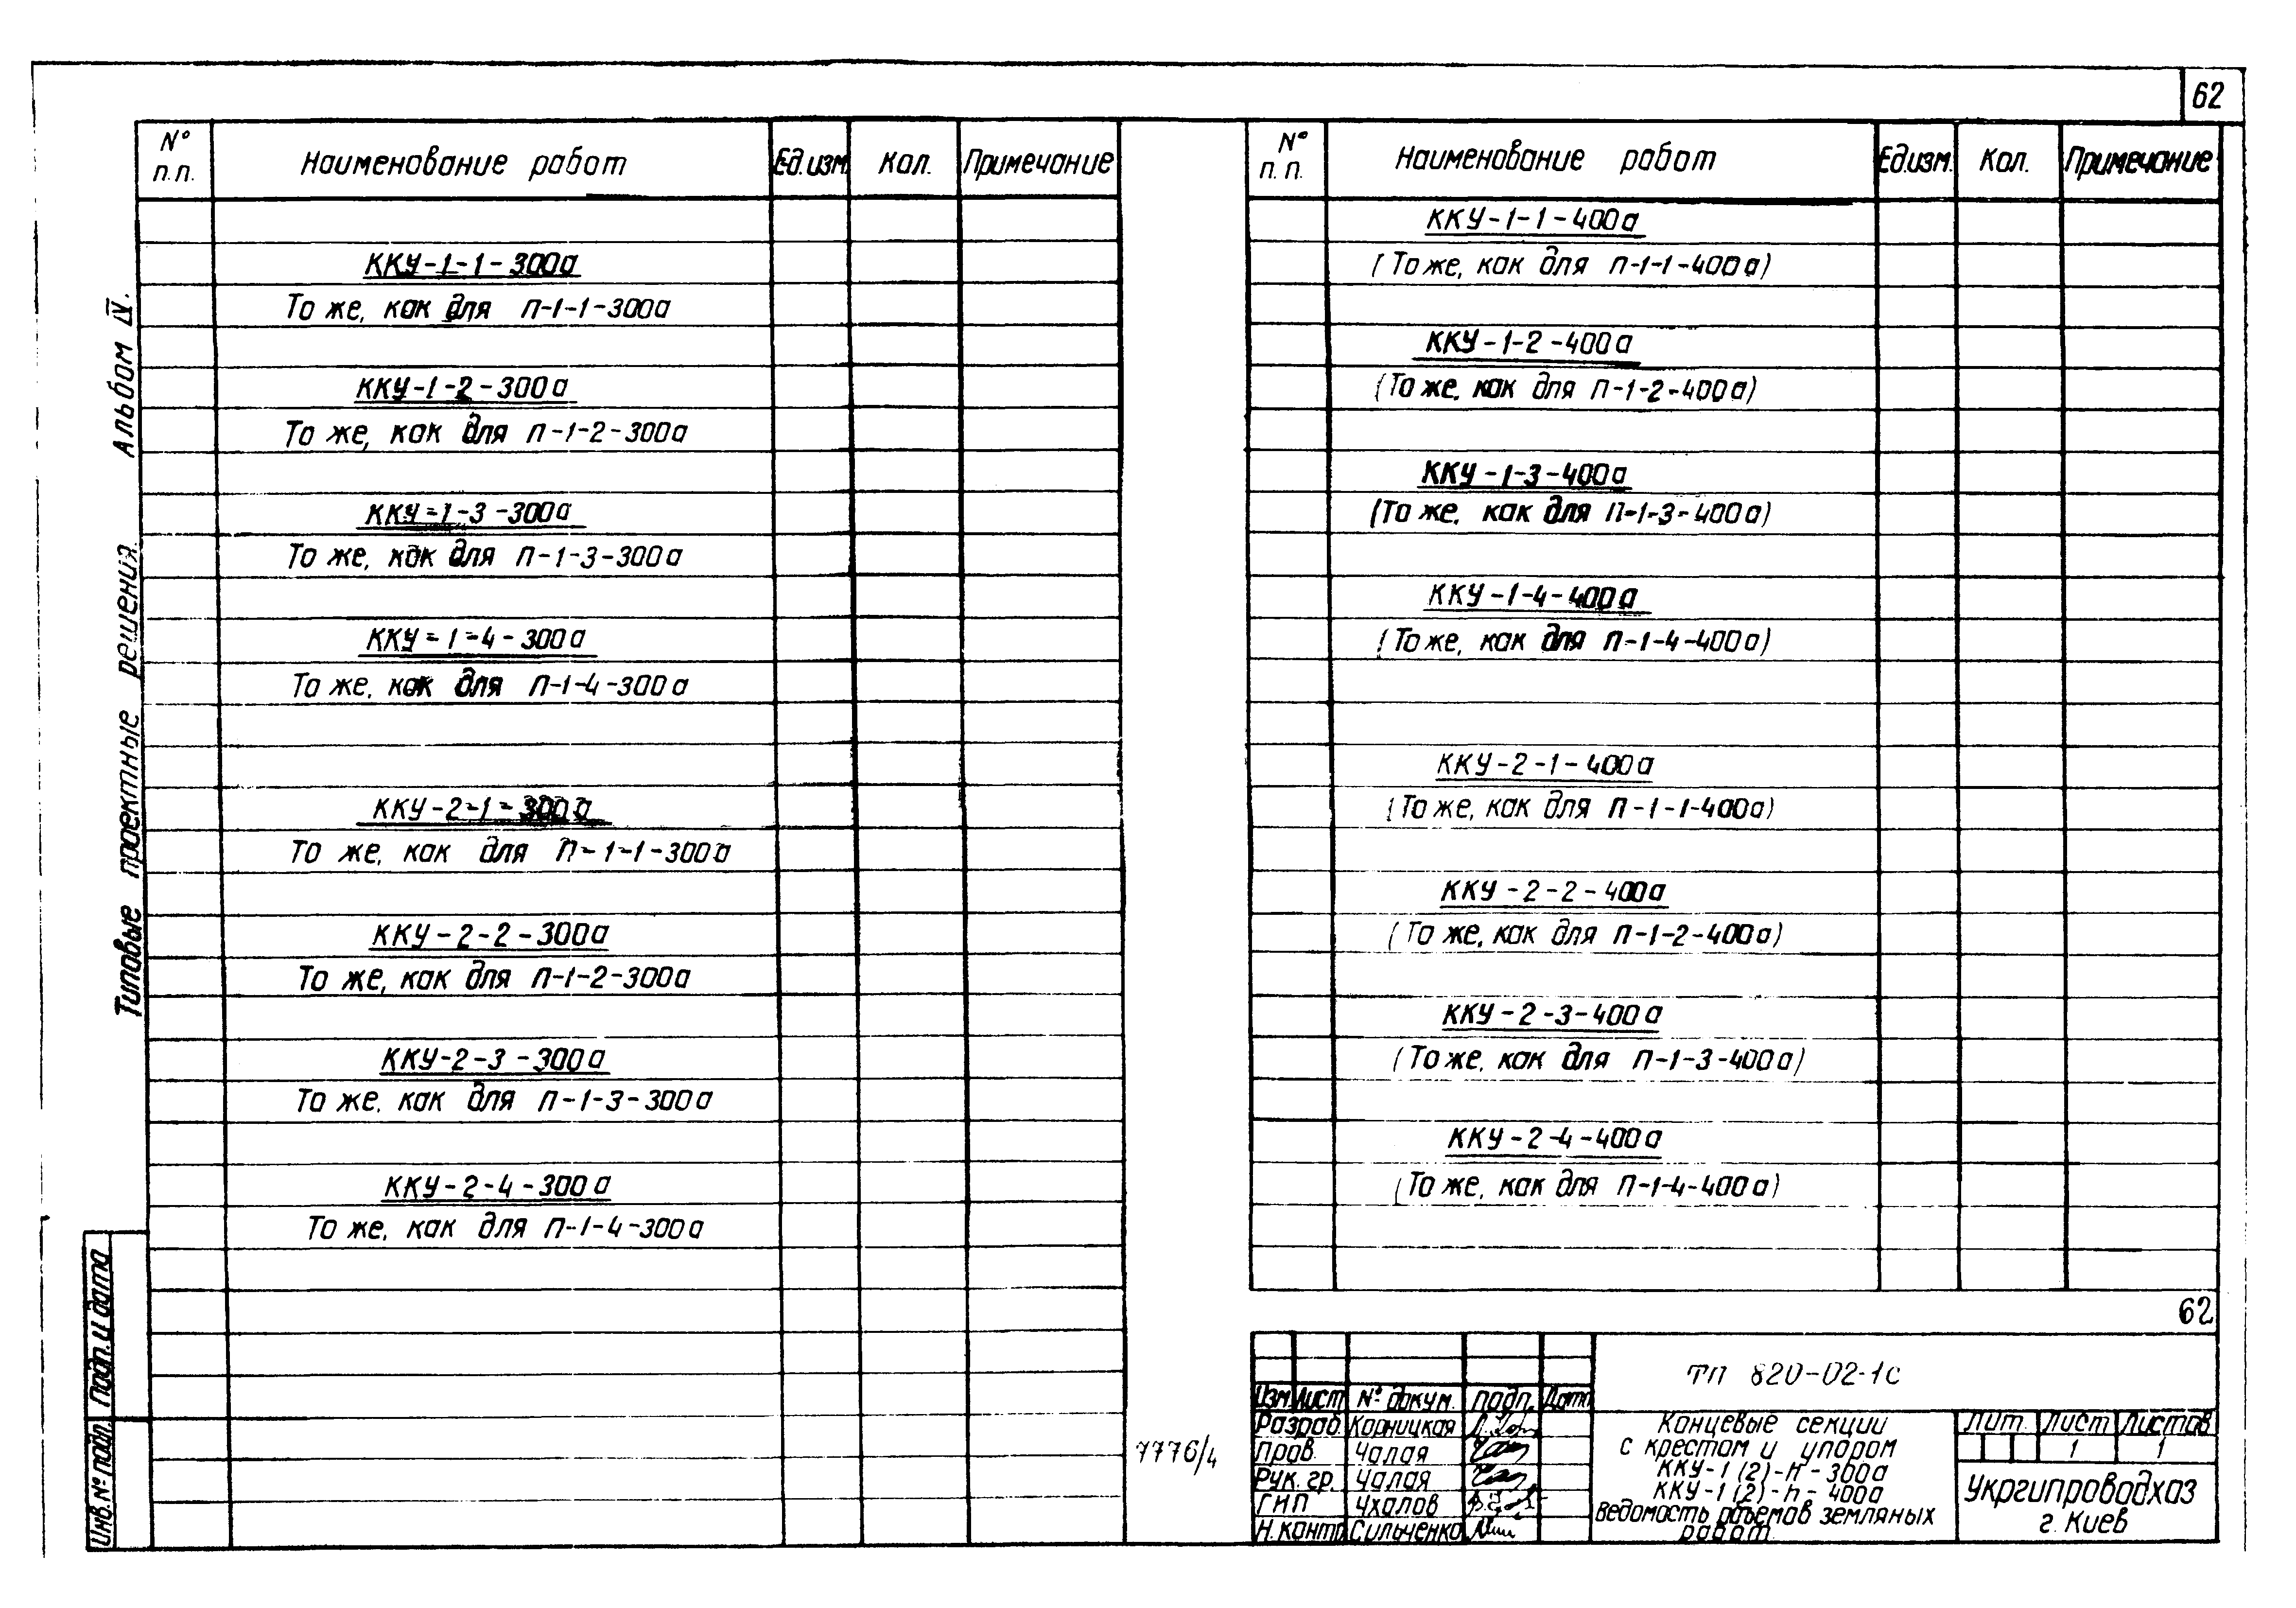 62
Типовые проектные решения. Альбом IV.
№ п.п. Наименование работ Ед.изм. Кол. Примечание
ККУ-1-1-300а
То же, как для П-1-1-300а
ККУ-1-2-300а
То же, как для П-1-2-300а
ККУ-1-3-300а
То же, как для П-1-3-300а
ККУ-1-4-300а
То же, как для П-1-4-300а
ККУ-2-1-300а
То же, как для П-1-1-300а
ККУ-2-2-300а
То же, как для П-1-2-300а
ККУ-2-3-300а
То же, как для П-1-3-300а
ККУ-2-4-300а
То же, как для П-1-4-300а
№ п.п. Наименование работ Ед.изм. Кол. Примечание
ККУ-1-1-400а
(То же, как для П-1-1-400а)
ККУ-1-2-400а
(То же, как для П-1-2-400а)
ККУ-1-3-400а
(То же, как для П-1-3-400а)
ККУ-1-4-400а
(То же, как для П-1-4-400а)
ККУ-2-1-400а
(То же, как для П-1-1-400а)
ККУ-2-2-400а
(То же, как для П-1-2-400а)
ККУ-2-3-400а
(То же, как для П-1-3-400а)
ККУ-2-4-400а
(То же, как для П-1-4-400а)
62
Инв.№ подл. Подп. и дата
7776/4
ТП 820-02-1с
Изм. Лист № докум. подп. Дата
Разраб. Корницкая
Пров. Чалая
Рук. гр. Чалая
ГИП Чхалов
Н.контр. Сильченко
Концевые секции
с крестом и упором
ККУ-1(2)-h-300а
ККУ-1(2)-h-400а
Ведомость объемов земляных
работ
Лит. Лист Листов
1 1
Укргипроводхоз
г. Киев